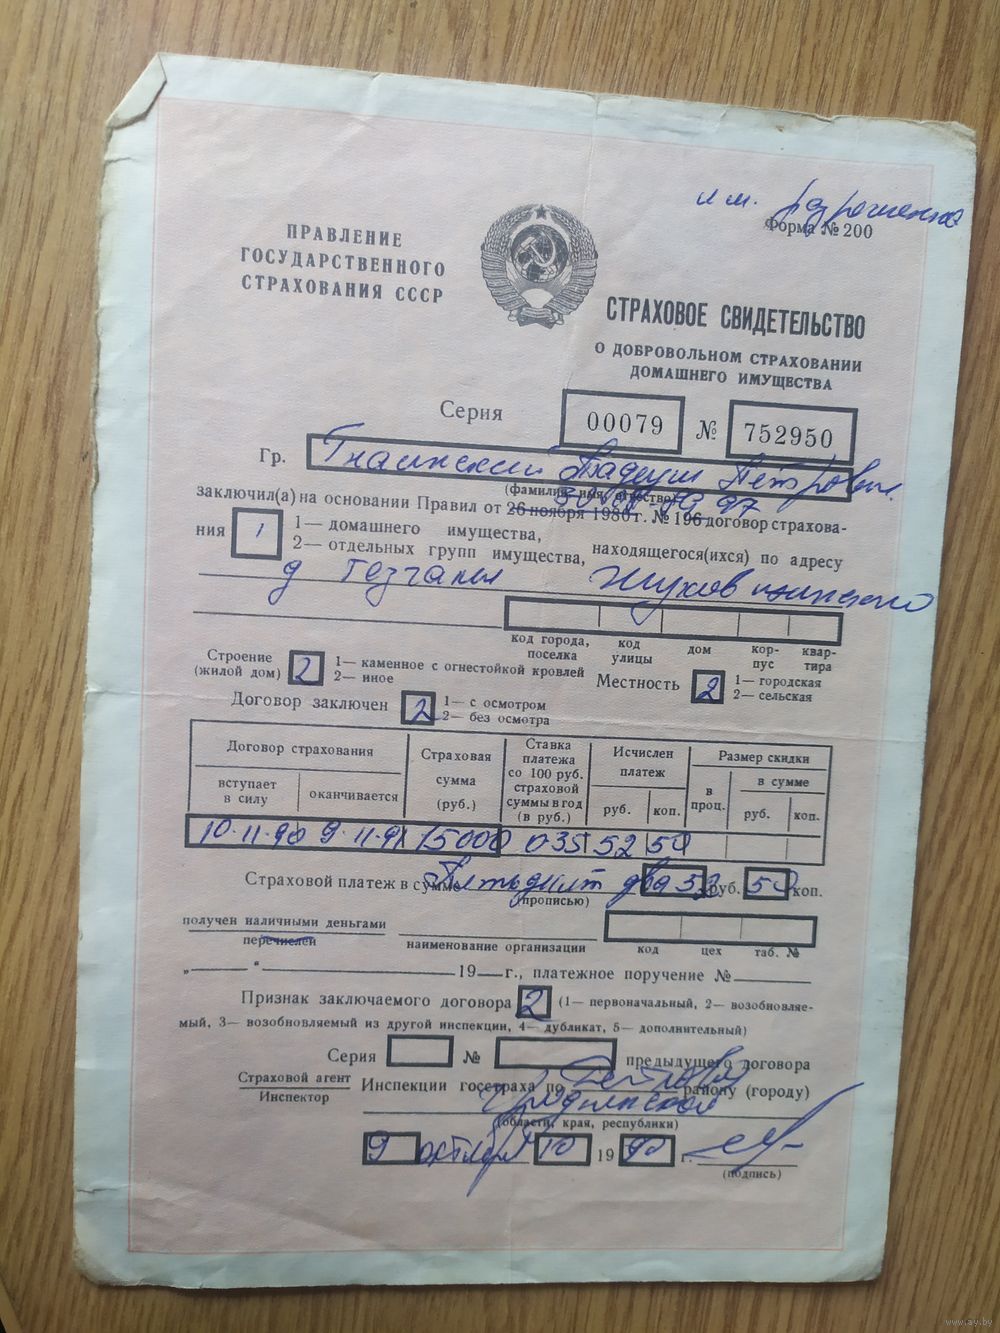 им.
Форма № 200
ПРАВЛЕНИЕ
ГОСУДАРСТВЕННОГО
СТРАХОВАНИЯ СССР
СТРАХОВОЕ СВИДЕТЕЛЬСТВО
О ДОБРОВОЛЬНОМ СТРАХОВАНИИ
ДОМАШНЕГО ИМУЩЕСТВА
Серия 00079 № 752950
Гр. Тадеуш Петрович
(фамилия, имя, отчество)
заключил(а) на основании Правил от 26 ноября 1980 г. № 196 договор страхова-
ния 1 1— домашнего имущества,
2— отдельных групп имущества, находящегося(ихся) по адресу
д
код города, поселка код улицы дом кор- пус квар- тира
Строение (жилой дом) 2 1— каменное с огнестойкой кровлей
2— иное
Местность 2 1— городская
2— сельская
Договор заключен 2 1— с осмотром
2— без осмотра
Договор страхования Страховая сумма (руб.) Ставка платежа со 100 руб. страховой суммы в год (в руб.) Исчислен платеж Размер скидки
вступает в силу оканчивается руб. коп. в проц. в сумме руб. коп.
10.11.90 9.11.91 15000 035 52 50
Страховой платеж в сумме Пятьдесят два 52 руб. 50 коп.
(прописью)
получен наличными деньгами
перечислен наименование организации код цех таб. №
„ “ 19 г., платежное поручение №
Признак заключаемого договора 2 (1— первоначальный, 2— возобновляе-
мый, 3— возобновляемый из другой инспекции, 4— дубликат, 5— дополнительный)
Серия № предыдущего договора
Страховой агент
Инспектор
Инспекции госстраха по району (городу)
Гродненской
(области, края, республики)
9 октября 10 1990 г.
(подпись)
www.ay.by